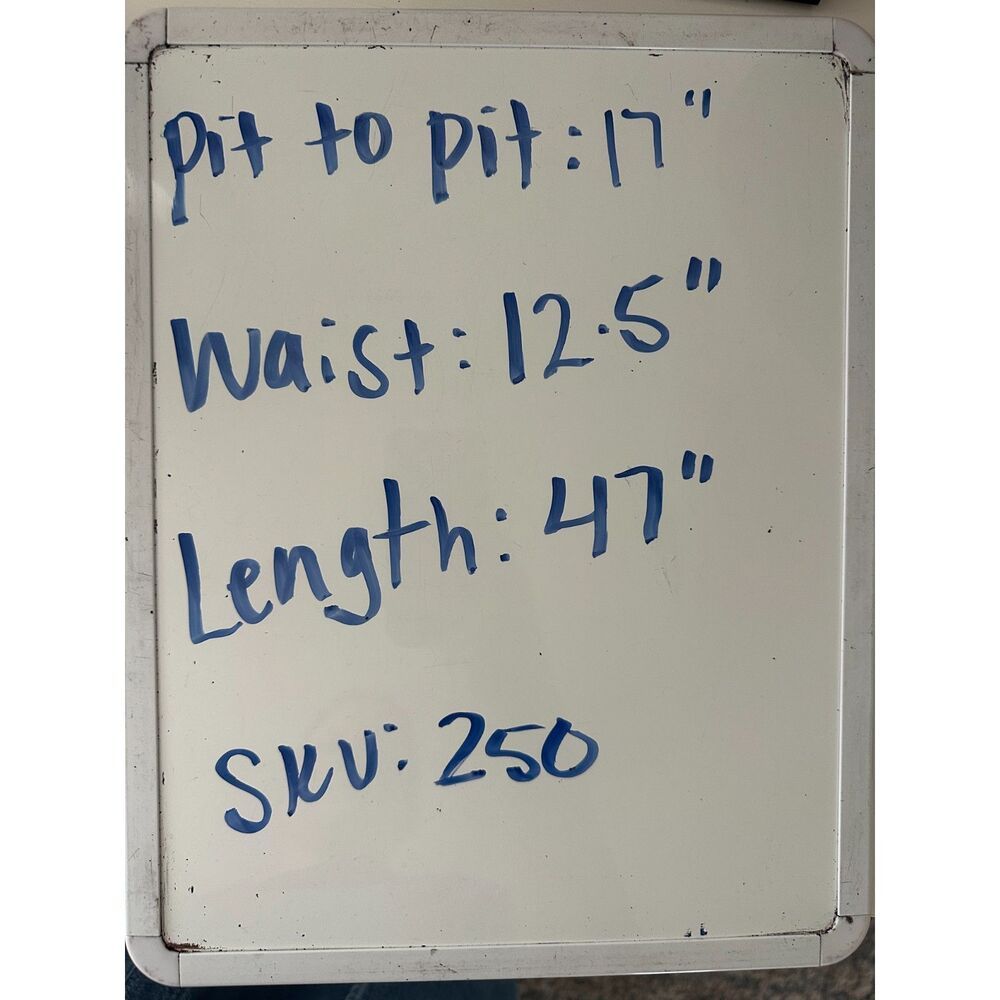 Pit to pit: 17"
Waist: 12.5"
Length: 47"
SKU: 250